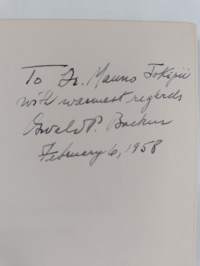 To Dr. Mauno Jokipii
with warmest regards
Oswald P. Backus
February 6, 1958